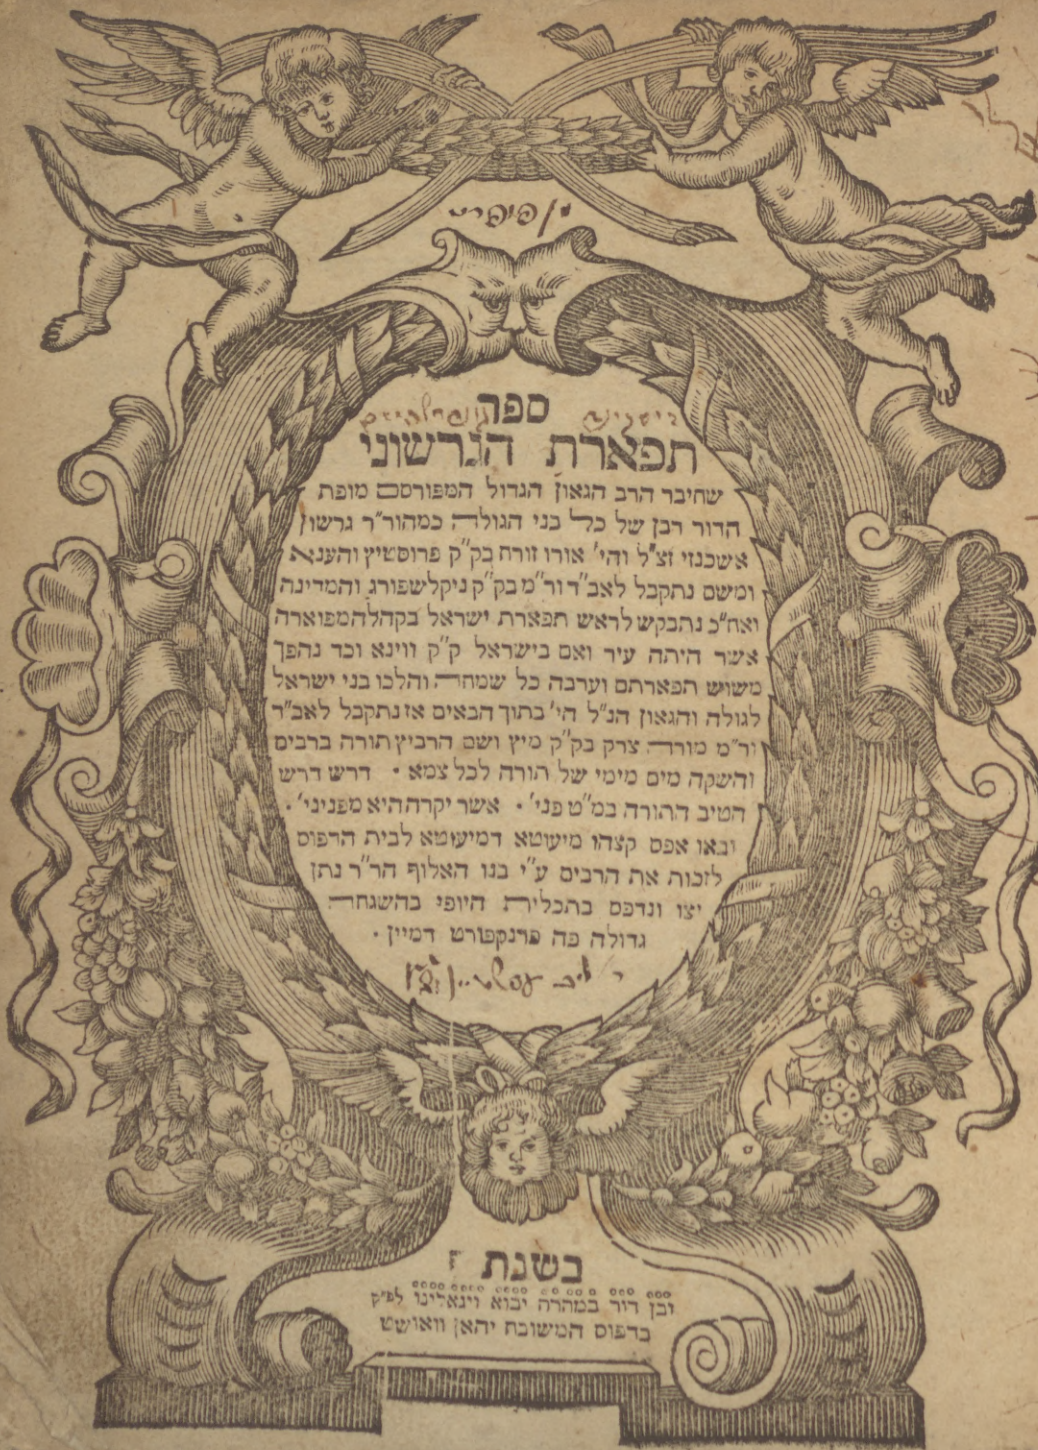 ספר
תפארת הגרשוני
שחיבר הרב הגאון הגדול המפורסם מופת
הדור רבן של כל בני הגולה כמהור״ר גרשון
אשכנזי זצ״ל והי׳ אורו זורח בק״ק פרוסטיץ והענא
ומשם נתקבל לאב״ד ור״מ בק״ק ניקלשפורג והמדינה
ואח״כ נתבקש לראש תפארת ישראל בקהלה המפוארה
אשר היתה עיר ואם בישראל ק״ק ווינא וכד נהפך
משוש תפארתם וערבה כל שמחה והלכו בני ישראל
לגולה והגאון הנ״ל הי׳ בתוך הבאים אז נתקבל לאב״ד
ור״מ מורה צדק בק״ק מיץ ושם הרביץ תורה ברבים
והשקה מים מימי של תורה לכל צמא · דרש דרש
הטיב התורה במ״ט פני׳ · אשר יקרה היא מפניני׳ ·
ובאו אפס קצהו מיעוטא דמיעוטא לבית הדפוס
לזכות את הרבים ע״י בנו האלוף הר״ר נתן
יצו ונדפס בתכלית היופי בהשגחה
גדולה פה פרנקפורט דמיין ·
בשנת
ובן דוד במהרה יבוא ויגאלינו לפ״ק
בדפוס המשובח יהאן וואושט